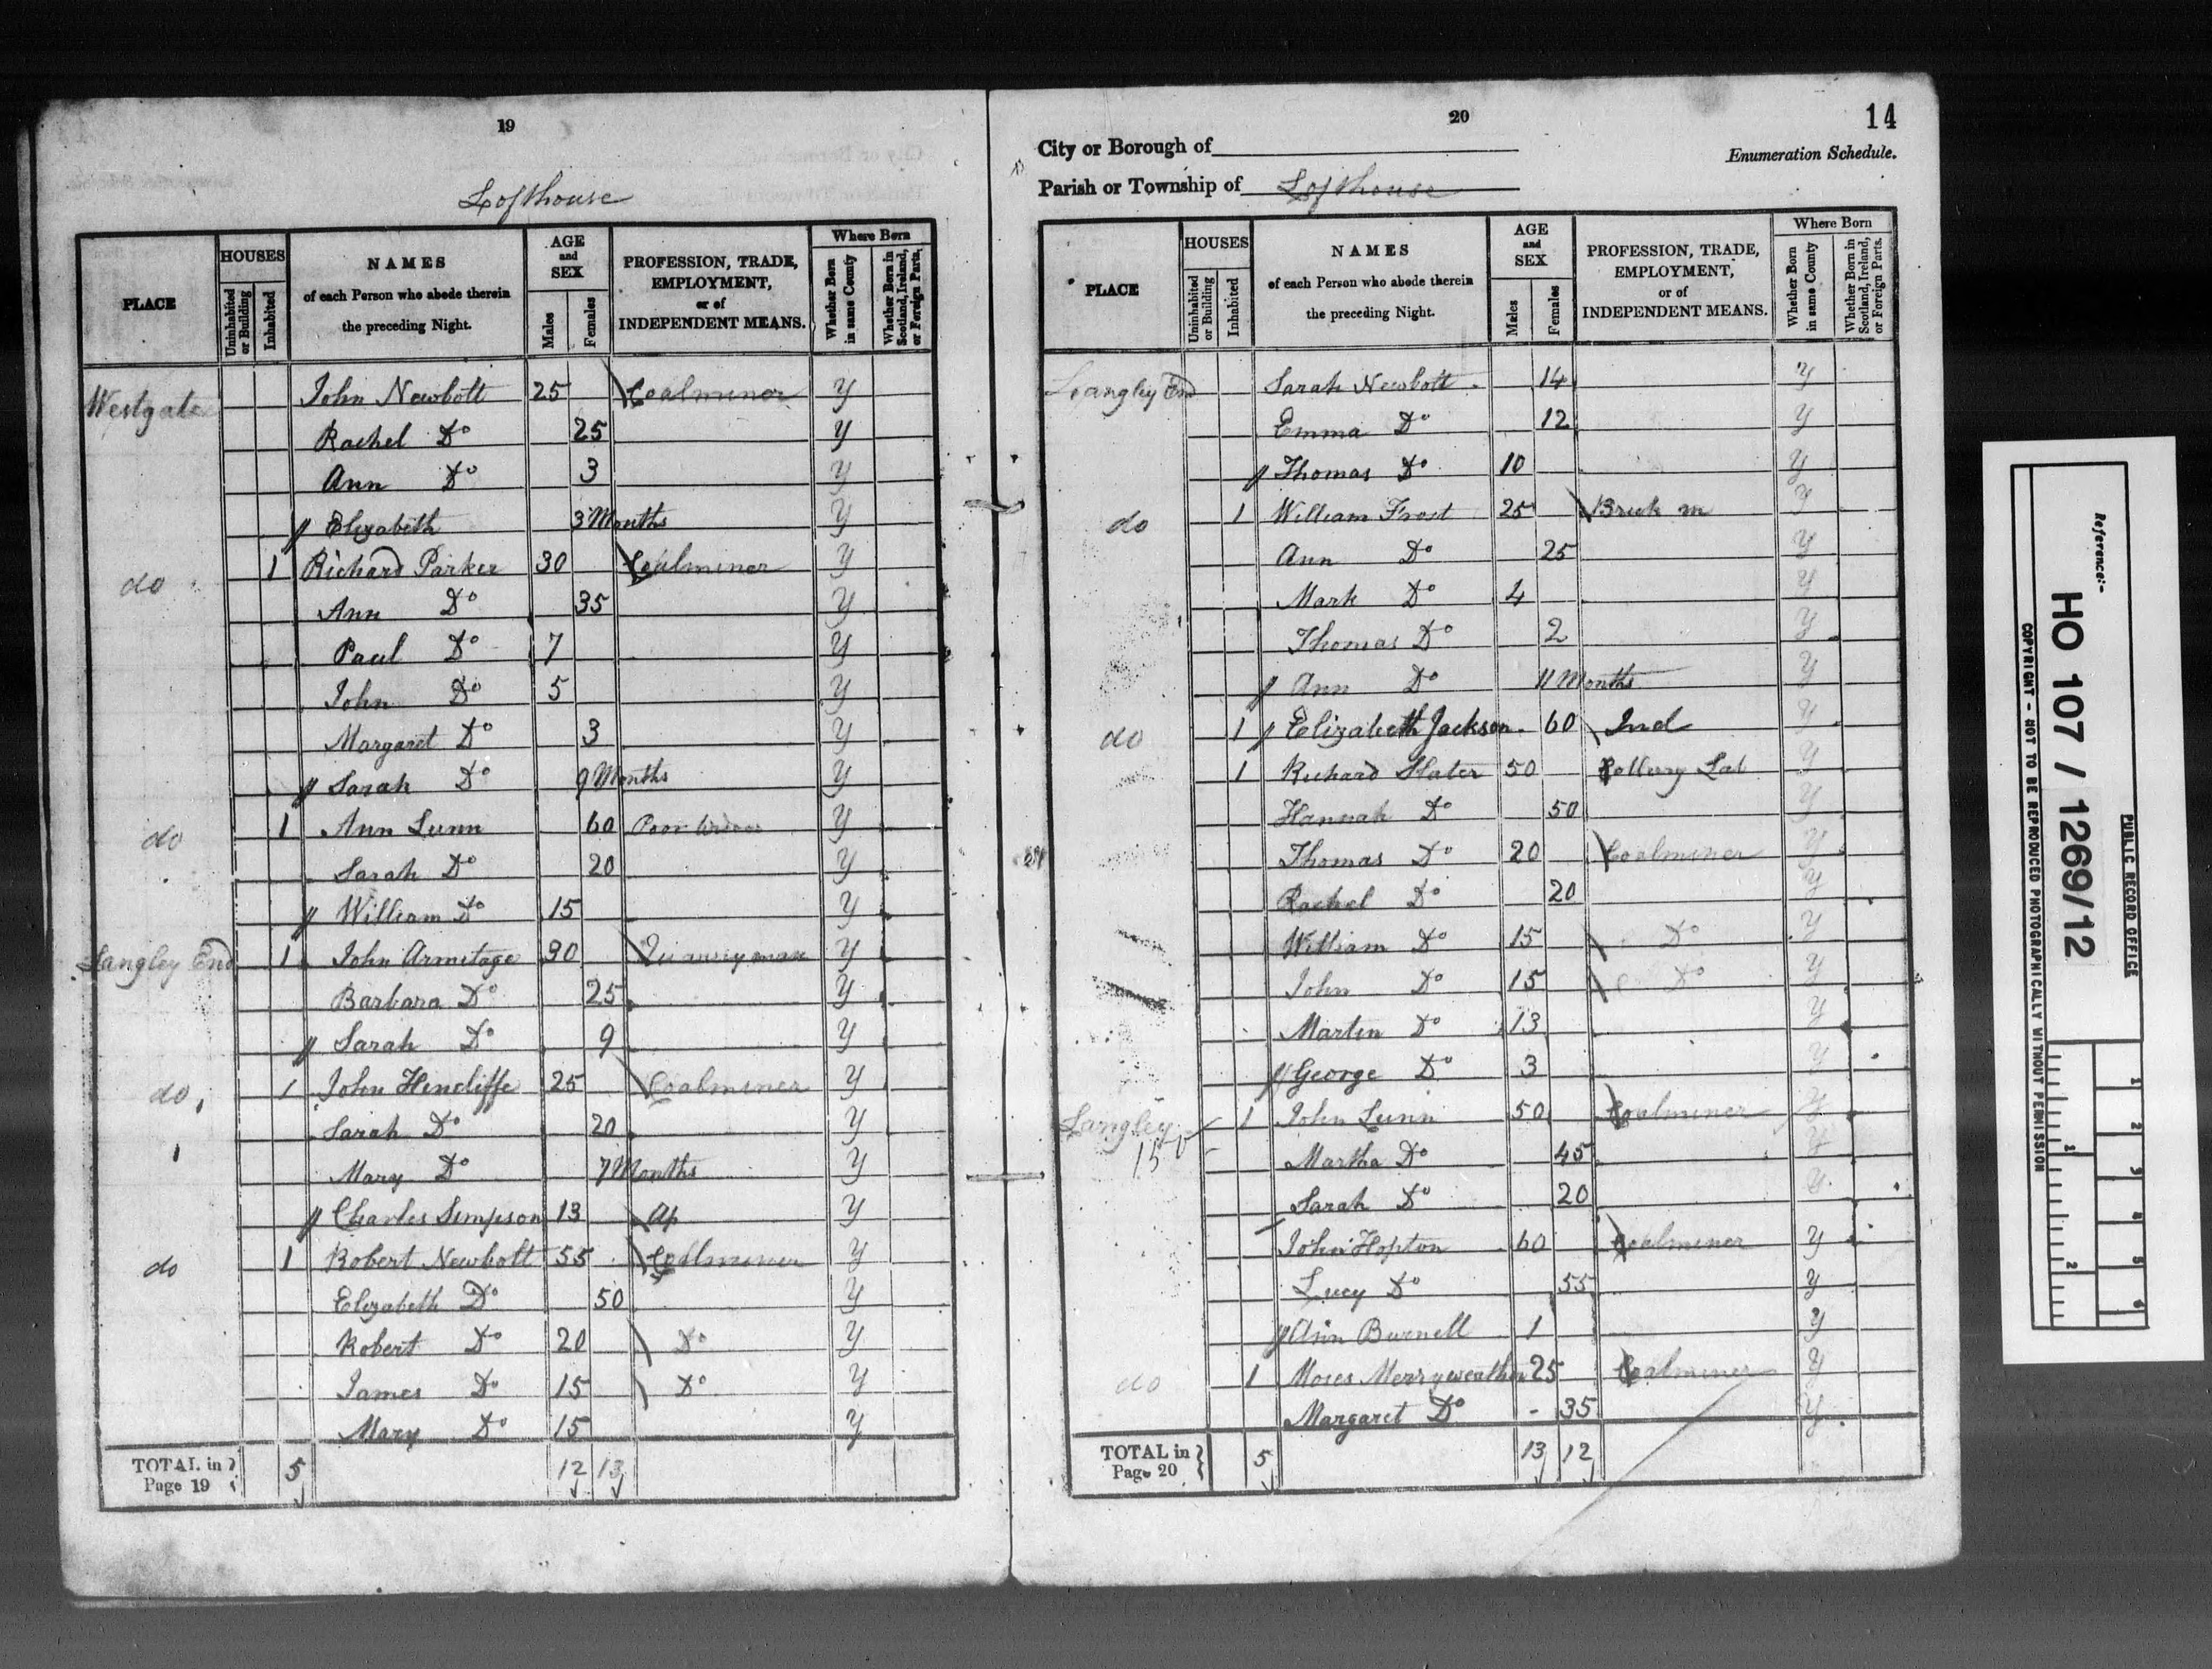 19
Lofthouse
PLACE
HOUSES
Uninhabited or Building
Inhabited
NAMES
of each Person who abode therein
the preceding Night.
AGE
and
SEX
Males
Females
PROFESSION, TRADE,
EMPLOYMENT,
or of
INDEPENDENT MEANS.
Where Born
Whether Born in same County
Whether Born in Scotland, Ireland, or Foreign Parts.
Westgate John Newbolt 25 Coalminer y
Rachel Do 25 y
Ann Do 3 y
Elizabeth 3 Months y
do 1 Richard Parker 30 Coalminer y
Ann Do 35 y
Paul Do 7 y
John Do 5 y
Margaret Do 3 y
Sarah Do 9 Months y
do 1 Ann Lunn 60 Poor y
Sarah Do 20 y
William Do 15 y
Langley End 1 John Armitage 30 Quarryman y
Barbara Do 25 y
Sarah Do 9 y
do 1 John Hincliffe 25 Coalminer y
Sarah Do 20 y
Mary Do 7 Months y
Charles Simpson 13 Ap y
do 1 Robert Newbolt 55 Coalminer y
Elizabeth Do 50 y
Robert Do 20 Do y
James Do 15 Do y
Mary Do 15 y
TOTAL in
Page 19
5 12 13
20
14
City or Borough of
Enumeration Schedule.
Parish or Township of Lofthouse
PLACE
HOUSES
Uninhabited or Building
Inhabited
NAMES
of each Person who abode therein
the preceding Night.
AGE
and
SEX
Males
Females
PROFESSION, TRADE,
EMPLOYMENT,
or of
INDEPENDENT MEANS.
Where Born
Whether Born in same County
Whether Born in Scotland, Ireland, or Foreign Parts.
Langley End Sarah Newbolt 14 y
Emma Do 12 y
Thomas Do 10 y
do 1 William Frost 25 Brick m y
Ann Do 25 y
Mark Do 4 y
Thomas Do 2 y
Ann Do 11 Months y
do 1 Elizabeth Jackson 60 Ind y
1 Richard Slater 50 Collery Lab y
Hannah Do 50 y
Thomas Do 20 Coalminer y
Rachel Do 20 y
William Do 15 Do y
John Do 15 Do y
Martin Do 13 y
George Do 3 y
Langley 1 John Lunn 50 Coalminer y
15 Martha Do 45 y
Sarah Do 20 y
John Hopton 60 Coalminer y
Lucy Do 55 y
Ann Burnell 1 y
do 1 Moses Merryweather 25 Coalminer y
Margaret Do 35 y
TOTAL in
Page 20
5 13 12
PUBLIC RECORD OFFICE
Reference:-
HO 107 / 1269/12
COPYRIGHT - NOT TO BE REPRODUCED PHOTOGRAPHICALLY WITHOUT PERMISSION
1 2 3 4 5 6
1 2